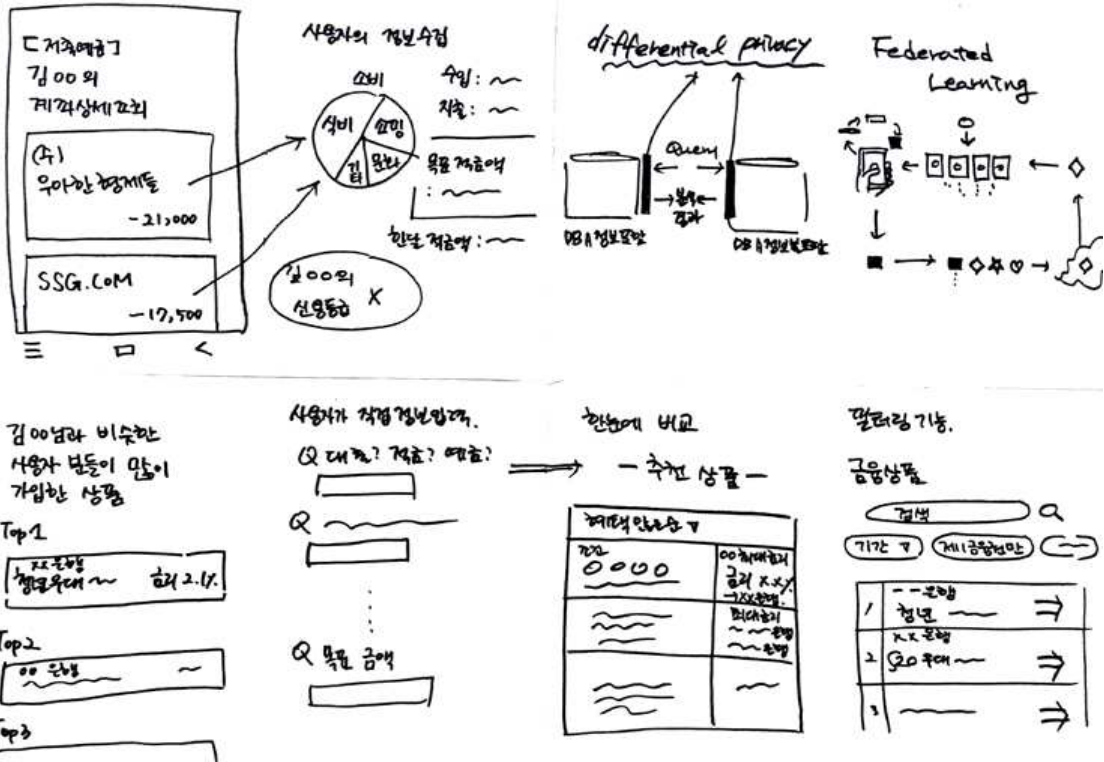 [저축예금]
김00의
계좌상세조회
(주)
우아한형제들
-21,000
SSG.COM
-17,500
사용자의 정보수집
소비
식비
쇼핑
문화
기타
수입:
지출:
목표 적금액
:
한달 적금액:
김00의
신용등급 X
differential privacy
Query
결과
Federated
Learning
김00님과 비슷한
사용자 분들이 많이
가입한 상품
Top1
xx은행
청년우대 금리 2.1%
Top2
00 은행
Top3
사용자가 직접 정보입력.
Q 대출? 적금? 예금?
Q
Q 목표 금액
한눈에 비교
- 추천 상품 -
혜택 많은순
00 최대금리
금리 x.x%
→XX은행.
최대금리
은행
은행
필터링 기능.
금융상품
검색
기간
제1금융권만
1
--은행
청년
2
xx은행
우대
3